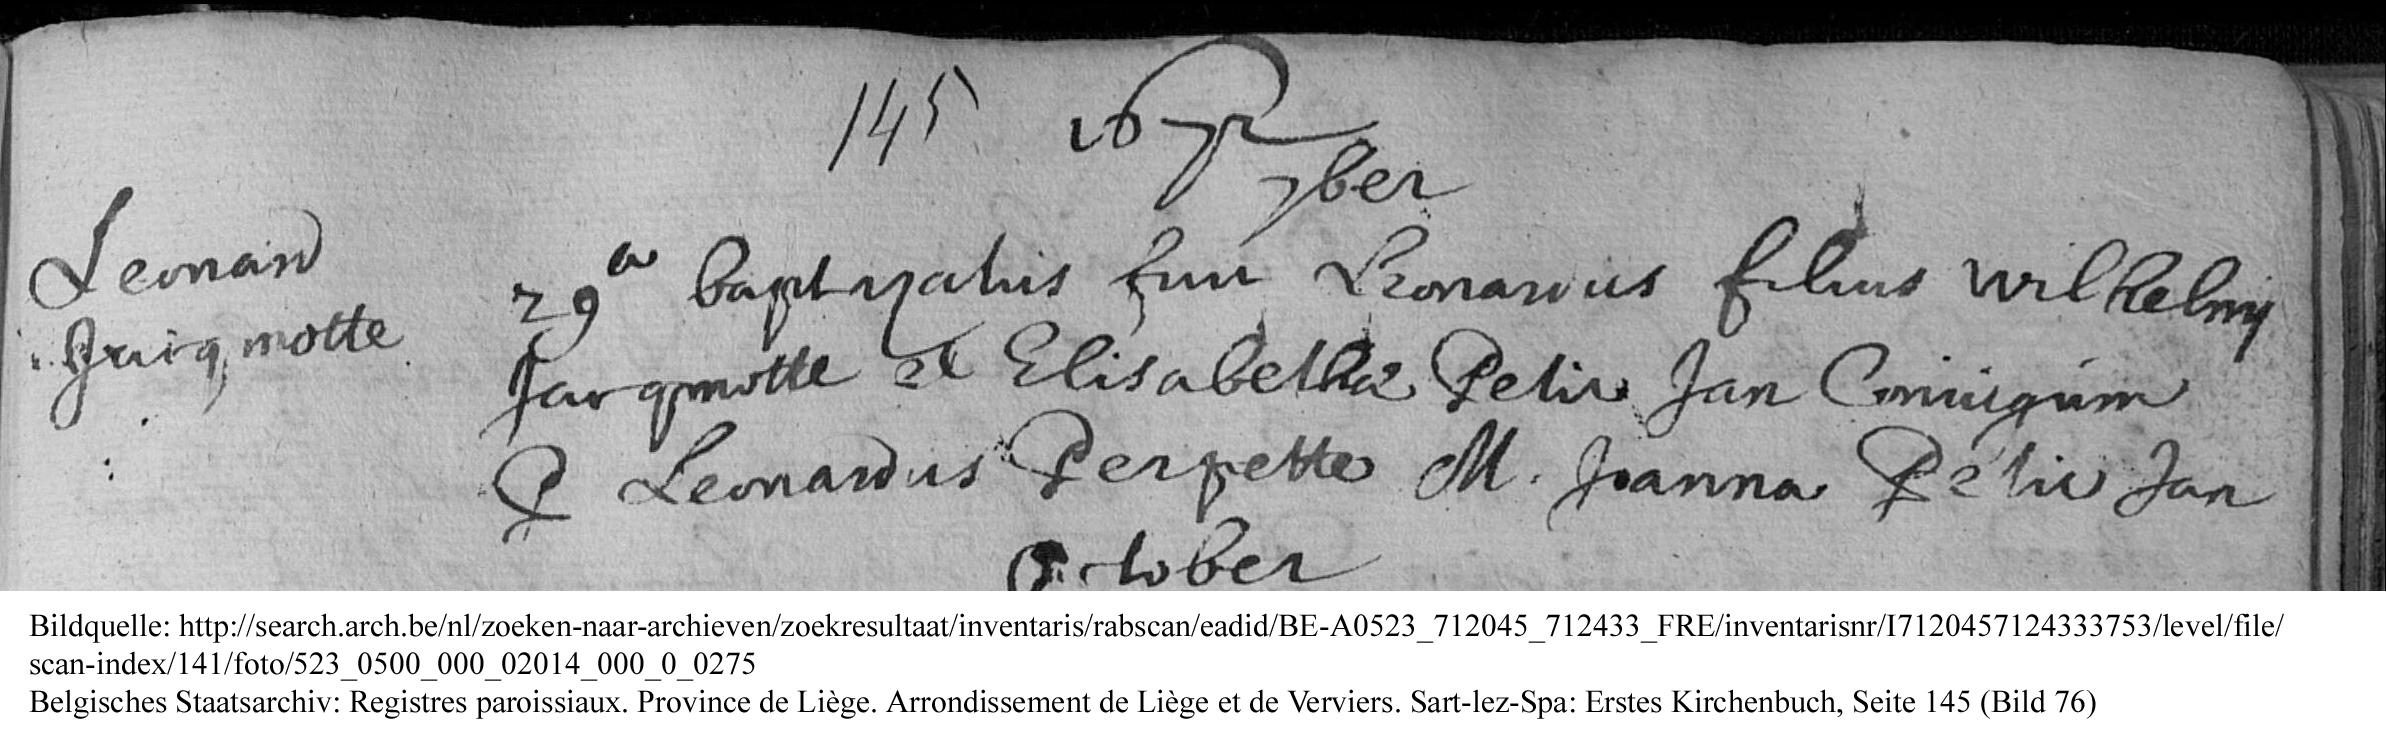 145 1672
7ber
Leonard
Jacqmotte
29a baptyzatus fuit Leonardus filius Wilhelmy
Jacqmotte et Elisabetha Petit Jan Coniugum
P Leonardus Perpette M. Joanna Petit Jan
October
Bildquelle: http://search.arch.be/nl/zoeken-naar-archieven/zoekresultaat/inventaris/rabscan/eadid/BE-A0523_712045_712433_FRE/inventarisnr/I7120457124333753/level/file/
scan-index/141/foto/523_0500_000_02014_000_0_0275
Belgisches Staatsarchiv: Registres paroissiaux. Province de Liège. Arrondissement de Liège et de Verviers. Sart-lez-Spa: Erstes Kirchenbuch, Seite 145 (Bild 76)